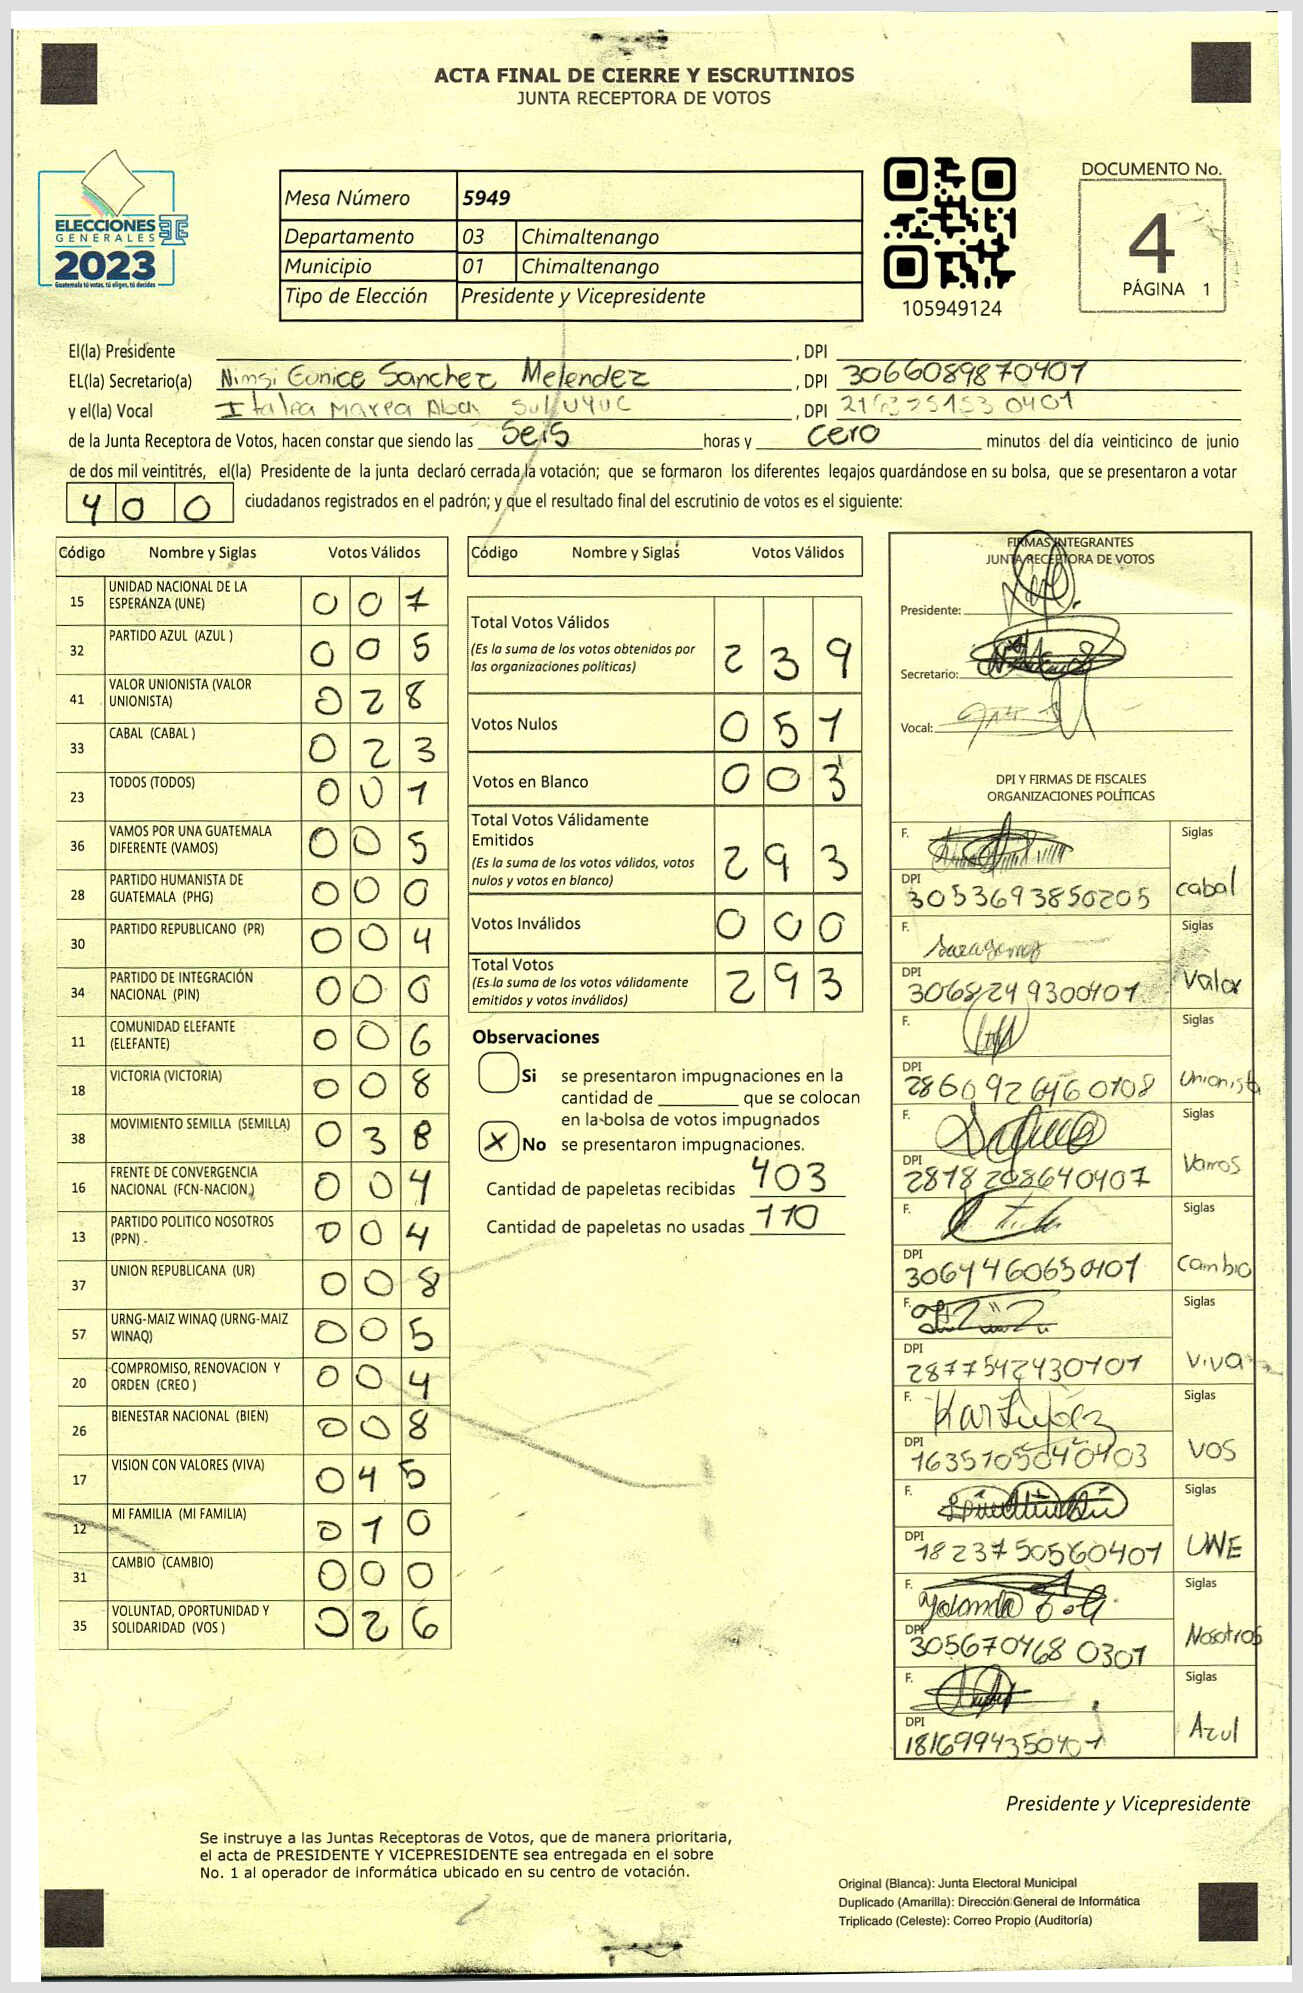 ACTA FINAL DE CIERRE Y ESCRUTINIOS
JUNTA RECEPTORA DE VOTOS
ELECCIONES
GENERALES
2023
Guatemala tú votas, tú eliges, tú decides
Mesa Número 5949
Departamento 03 Chimaltenango
Municipio 01 Chimaltenango
Tipo de Elección Presidente y Vicepresidente
105949124
DOCUMENTO No.
4
PÁGINA 1
El(la) Presidente , DPI
EL(la) Secretario(a) Nimsi Eunice Sanchez Melendez , DPI 3066089870401
y el(la) Vocal , DPI
de la Junta Receptora de Votos, hacen constar que siendo las Seis horas y cero minutos del día veinticinco de junio
de dos mil veintitrés, el(la) Presidente de la junta declaró cerrada la votación; que se formaron los diferentes legajos guardándose en su bolsa, que se presentaron a votar
400 ciudadanos registrados en el padrón; y que el resultado final del escrutinio de votos es el siguiente:
Código Nombre y Siglas Votos Válidos
15 UNIDAD NACIONAL DE LA ESPERANZA (UNE) 007
32 PARTIDO AZUL (AZUL ) 005
41 VALOR UNIONISTA (VALOR UNIONISTA) 028
33 CABAL (CABAL ) 023
23 TODOS (TODOS) 001
36 VAMOS POR UNA GUATEMALA DIFERENTE (VAMOS) 005
28 PARTIDO HUMANISTA DE GUATEMALA (PHG) 000
30 PARTIDO REPUBLICANO (PR) 004
34 PARTIDO DE INTEGRACIÓN NACIONAL (PIN) 000
11 COMUNIDAD ELEFANTE (ELEFANTE) 006
18 VICTORIA (VICTORIA) 008
38 MOVIMIENTO SEMILLA (SEMILLA) 038
16 FRENTE DE CONVERGENCIA NACIONAL (FCN-NACION) 004
13 PARTIDO POLITICO NOSOTROS (PPN) 004
37 UNION REPUBLICANA (UR) 008
57 URNG-MAIZ WINAQ (URNG-MAIZ WINAQ) 005
20 COMPROMISO, RENOVACION Y ORDEN (CREO ) 004
26 BIENESTAR NACIONAL (BIEN) 008
17 VISION CON VALORES (VIVA) 045
12 MI FAMILIA (MI FAMILIA) 010
31 CAMBIO (CAMBIO) 000
35 VOLUNTAD, OPORTUNIDAD Y SOLIDARIDAD (VOS ) 026
Código Nombre y Siglas Votos Válidos
Total Votos Válidos 239
(Es la suma de los votos obtenidos por
las organizaciones políticas)
Votos Nulos 051
Votos en Blanco 003
Total Votos Válidamente
Emitidos 293
(Es la suma de los votos válidos, votos
nulos y votos en blanco)
Votos Inválidos 000
Total Votos 293
(Es la suma de los votos válidamente
emitidos y votos inválidos)
Observaciones
Si se presentaron impugnaciones en la
cantidad de ________ que se colocan
en la bolsa de votos impugnados
X No se presentaron impugnaciones.
Cantidad de papeletas recibidas 403
Cantidad de papeletas no usadas 110
FIRMAS INTEGRANTES
JUNTA RECEPTORA DE VOTOS
Presidente:
Secretario:
Vocal:
DPI Y FIRMAS DE FISCALES
ORGANIZACIONES POLÍTICAS
F. Siglas
DPI 3053693850205 cabal
F. Siglas
DPI 3068249300401 Valor
F. Siglas
DPI 2860926460108 Unionista
F. Siglas
DPI 2878208640407 Vamos
F. Siglas
DPI 3064460650401 Cambio
F. Siglas
DPI 2877542430401 Viva
F. Siglas
DPI 1635105040403 VOS
F. Siglas
DPI 1823750560401 UNE
F. Siglas
DPI 3056704680301 Nosotros
F. Siglas
DPI 1816994350401 Azul
Presidente y Vicepresidente
Se instruye a las Juntas Receptoras de Votos, que de manera prioritaria,
el acta de PRESIDENTE Y VICEPRESIDENTE sea entregada en el sobre
No. 1 al operador de informática ubicado en su centro de votación.
Original (Blanca): Junta Electoral Municipal
Duplicado (Amarilla): Dirección General de Informática
Triplicado (Celeste): Correo Propio (Auditoría)